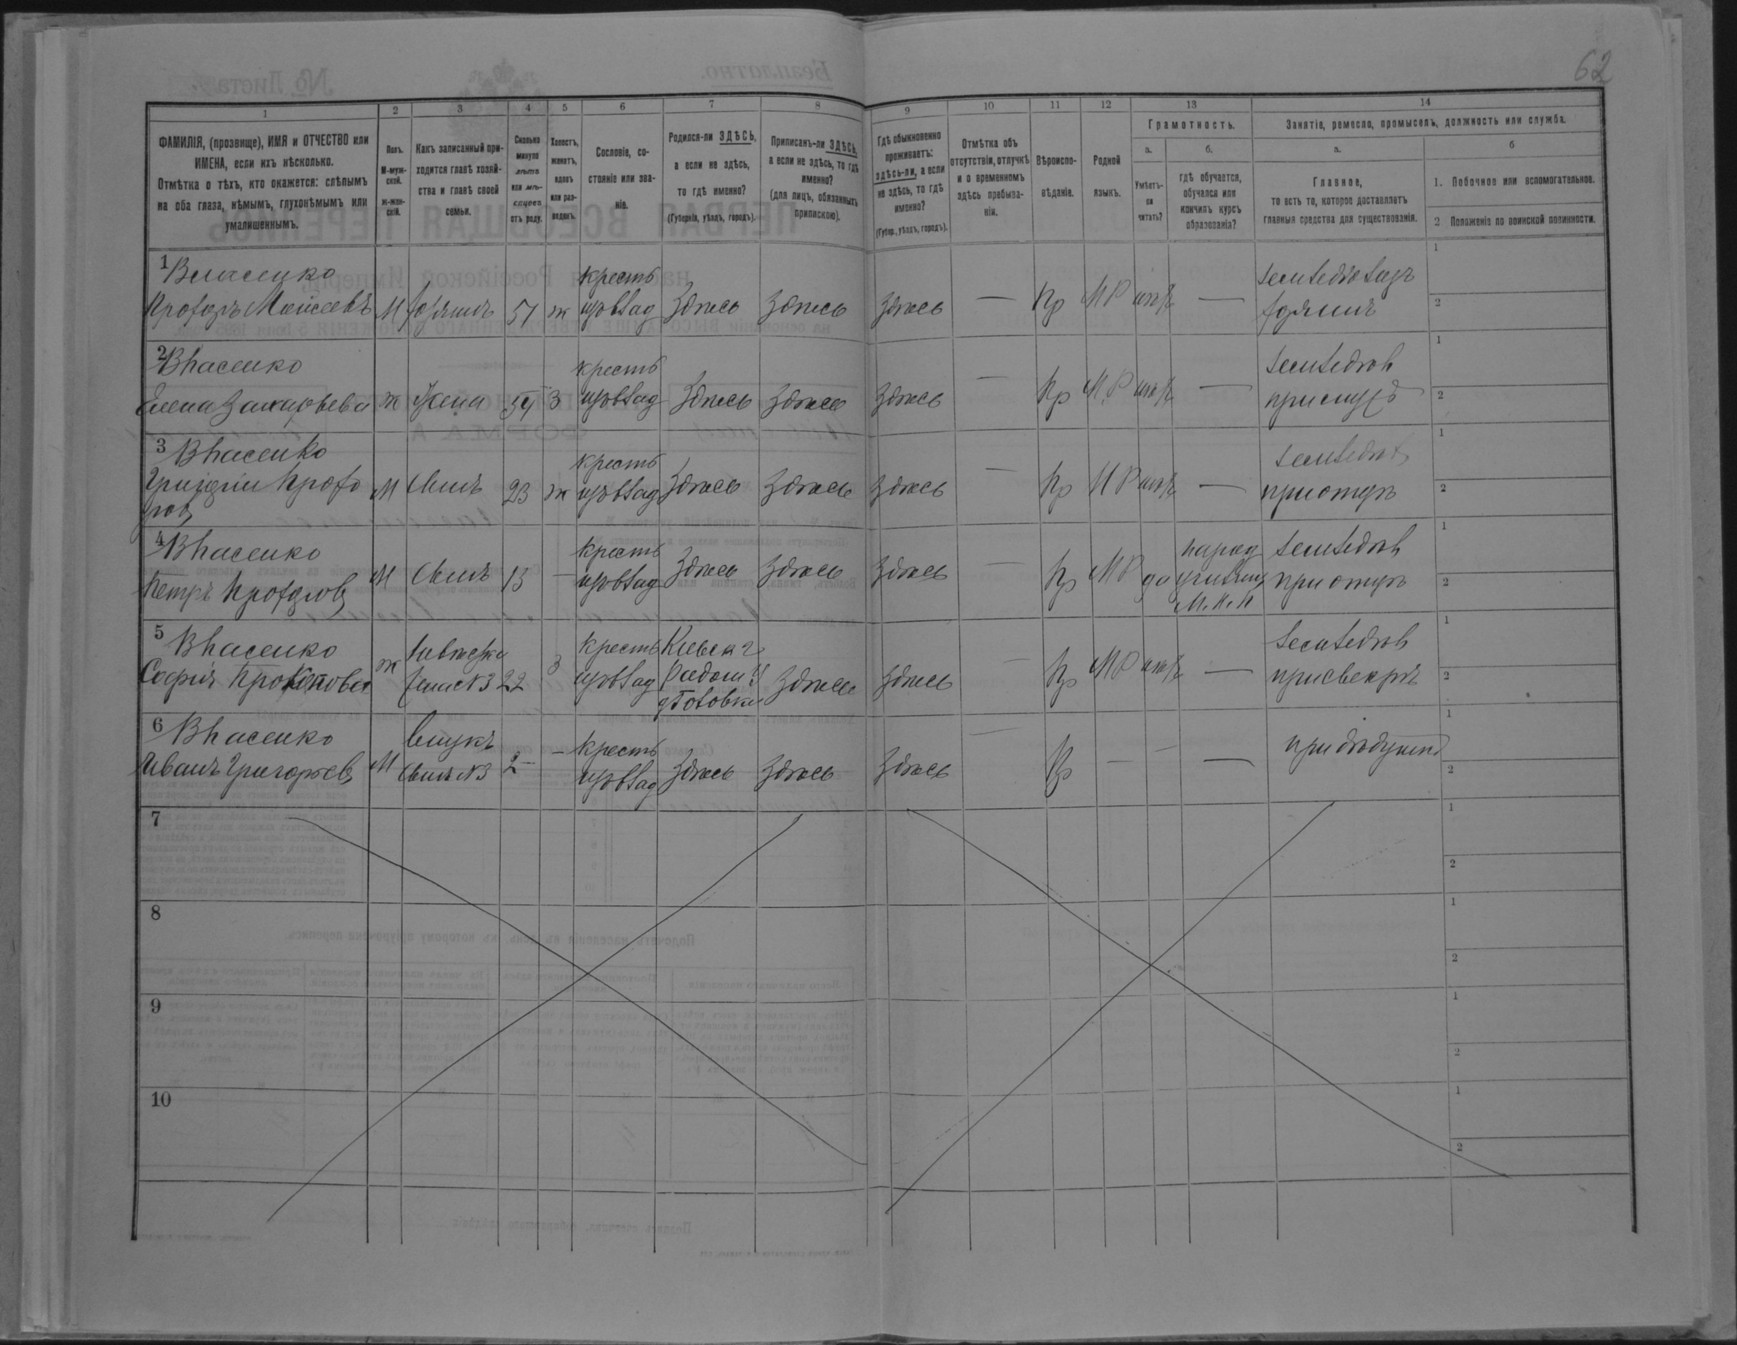 62
1 2 3 4 5 6 7 8 9 10 11 12 13 14
ФАМИЛІЯ, (прозвище), ИМЯ и ОТЧЕСТВО или
ИМЕНА, если ихъ нѣсколько.
Отмѣтка о тѣхъ, кто окажется: слѣпымъ
на оба глаза, нѣмымъ, глухонѣмымъ или
умалишеннымъ.
Полъ.
М-муж-
ской.
Ж-жен-
скій.
Какъ записанный при-
ходится главѣ хозяй-
ства и главѣ своей
семьи.
Сколько
минуло
лѣтъ
или мѣ-
сяцевъ
отъ роду.
Холостъ,
женатъ,
вдовъ
или раз-
веденъ.
Сословіе, со-
стояніе или зва-
ніе.
Родился-ли ЗДѢСЬ,
а если не здѣсь,
то гдѣ именно?
(Губернія, уѣздъ, городъ).
Приписанъ-ли ЗДѢСЬ,
а если не здѣсь, то гдѣ
именно?
(для лицъ, обязанныхъ
припискою).
Гдѣ обыкновенно
проживаетъ:
здѣсь-ли, а если
не здѣсь, то гдѣ
именно?
(Губер., уѣздъ, городъ).
Отмѣтка объ
отсутствіи, отлучкѣ
и о временномъ
здѣсь пребыва-
ніи.
Вѣроиспо-
вѣданіе.
Родной
языкъ.
Грамотность.
а. б.
Умѣетъ-
ли
читать?
гдѣ обучается,
обучался или
кончилъ курсъ
образованія?
Занятіе, ремесло, промыселъ, должность или служба.
а. б
Главное,
то есть то, которое доставляетъ
главныя средства для существованія.
1. Побочное или вспомогательное.
2 Положеніе по воинской повинности.
1 Власенко
Моисеевъ М 57 ж крестъ Здѣсь Здѣсь Здѣсь — Пр МР нѣтъ — земледѣлецъ
2 Власенко
Елена Захарьева ж жена 54 З крестъ Здѣсь Здѣсь Здѣсь — Пр МР нѣтъ — при мужѣ
3 Власенко
Григорій М сынъ 23 ж крестъ Здѣсь Здѣсь Здѣсь — Пр МР нѣтъ — при отцѣ
4 Власенко
Петръ М сынъ 13 — крестъ Здѣсь Здѣсь Здѣсь — Пр МР да народ при отцѣ
5 Власенко
Софія Прокопова ж невѣстка 22 З крестъ Кіевск г Здѣсь Здѣсь — Пр МР нѣтъ — при свекрѣ
6 Власенко
Иванъ Григорьевъ М внукъ сынъ N3 2 — крестъ Здѣсь Здѣсь Здѣсь — Пр — — — при дѣдушкѣ
7
8
9
10
1
2
1
2
1
2
1
2
1
2
1
2
1
2
1
2
1
2
1
2